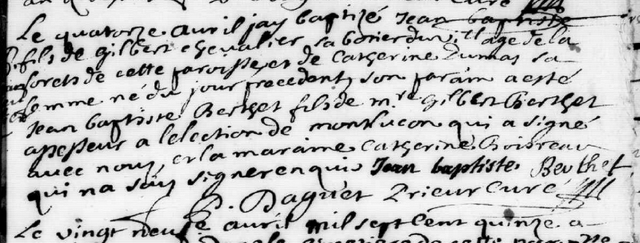 Le quatorze avril jay baptizé Jean baptiste
fils de gilbert chevalier laboureur du village de la
forets de cette paroisse et de Catherine Dumas sa
femme né du jour precedent, son parain a esté
Jean baptiste Berthet fils de mre gilbert Berthet
assesseur a lelection de montlucon qui a signé
avec nous, et la maraine Catherine Boireau
qui na sçu signer enquis Jean baptiste Berthet
P. Daguet Prieur Curé
Le vingt neuf avril mil sept cent quinze a